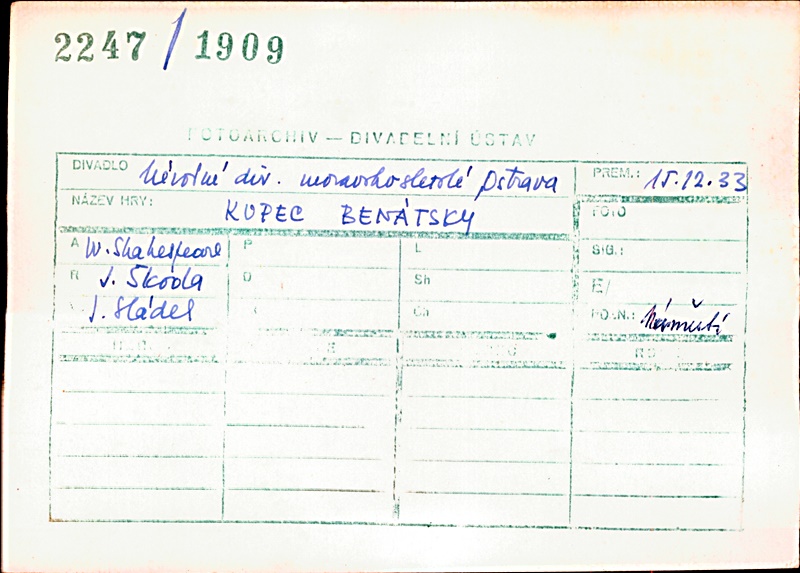 2247/1909
FOTOARCHIV — DIVADELNÍ ÚSTAV
DIVADLO Národné div. moravskoslezské Ostrava PREM.: 15.12.33
NÁZEV HRY: KUPEC BENÁTSKY FOTO
A W. Shakespeare P L SIG.:
R J. Škoda O Sh E/
J. Sládek Ch POZN.: Náměstí